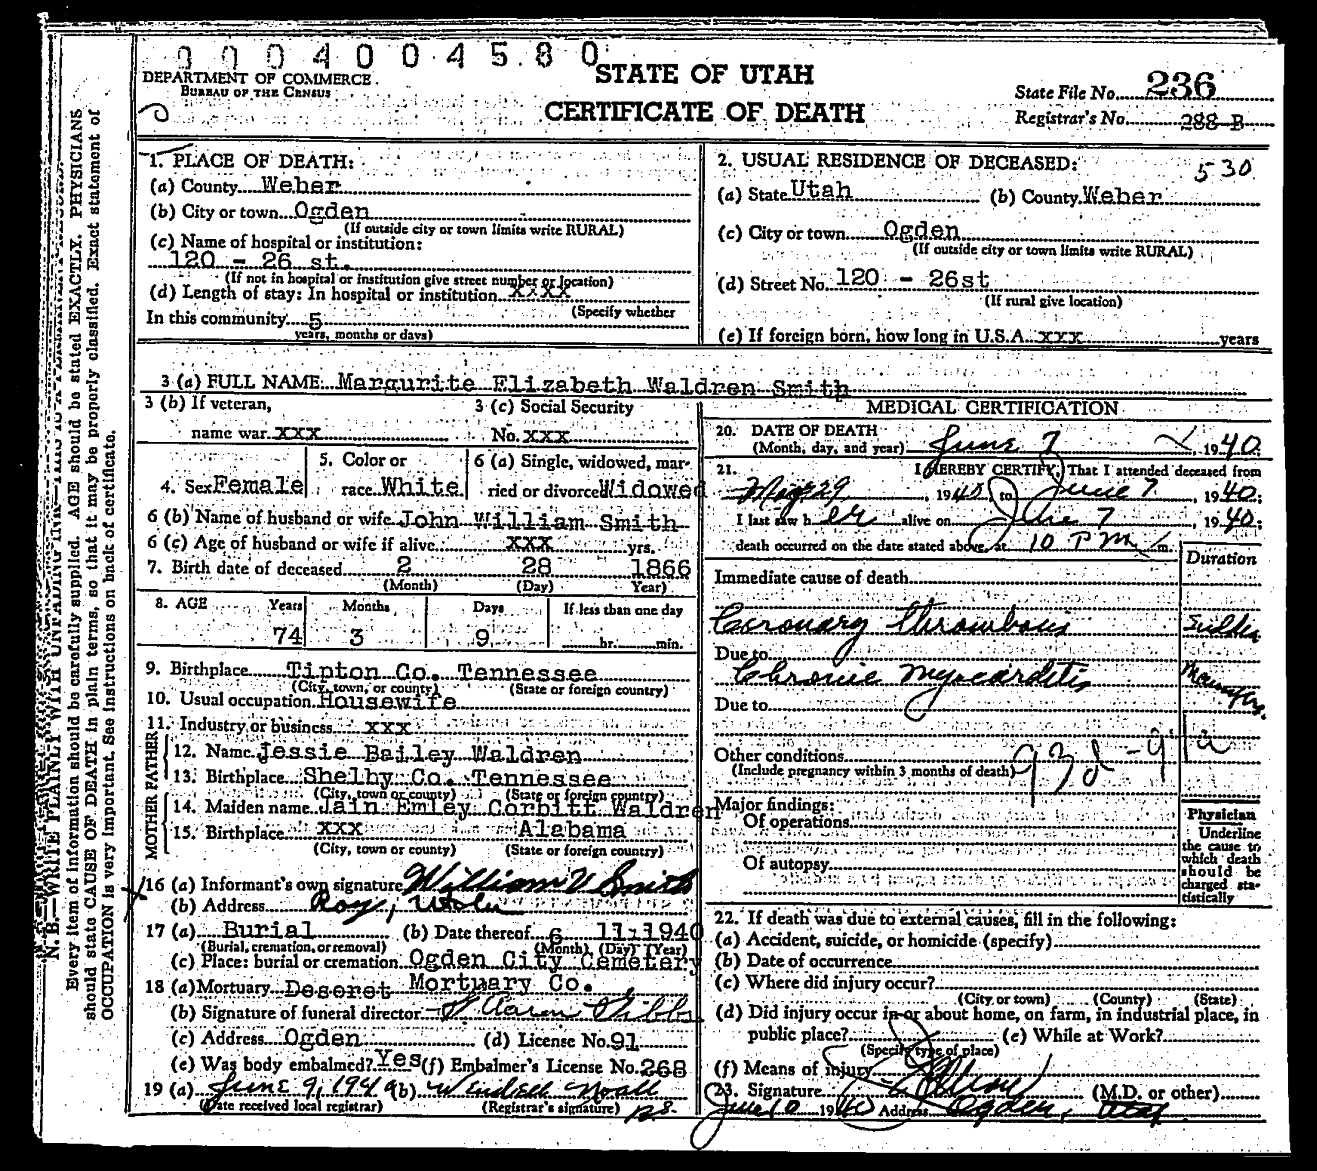 0004004580
DEPARTMENT OF COMMERCE
BUREAU OF THE CENSUS
STATE OF UTAH
CERTIFICATE OF DEATH
State File No. 236
Registrar's No. 288-B
1. PLACE OF DEATH:
(a) County Weber
(b) City or town Ogden
(If outside city or town limits write RURAL)
(c) Name of hospital or institution:
120 - 26 st.
(If not in hospital or institution give street number or location)
(d) Length of stay: In hospital or institution xxxx
(Specify whether
In this community 5
years, months or days)
2. USUAL RESIDENCE OF DECEASED: 530
(a) State Utah (b) County Weber
(c) City or town Ogden
(If outside city or town limits write RURAL)
(d) Street No. 120 - 26st
(If rural give location)
(e) If foreign born, how long in U.S.A. xxx years
3 (a) FULL NAME Margurite Elizabeth Waldren Smith
3 (b) If veteran, name war xxx
3 (c) Social Security No. xxx
4. Sex Female
5. Color or race White
6 (a) Single, widowed, married or divorced Widowed
6 (b) Name of husband or wife John William Smith
6 (c) Age of husband or wife if alive xxx yrs.
7. Birth date of deceased 2 28 1866
(Month) (Day) Year)
8. AGE Years Months Days If less than one day
74 3 9 hr. min.
9. Birthplace Tipton Co. Tennessee
(City, town, or county) (State or foreign country)
10. Usual occupation Housewife
11. Industry or business xxx
FATHER
12. Name Jessie Bailey Waldren
13. Birthplace Shelby Co. Tennessee
(City, town or county) (State or foreign country)
MOTHER
14. Maiden name Jain Emley Corbitt Waldren
15. Birthplace xxx Alabama
(City, town or county) (State or foreign country)
16 (a) Informant's own signature William V Smith
(b) Address Roy, Utah
17 (a) Burial (b) Date thereof 6 11 1940
(Burial, cremation, or removal) (Month) (Day) (Year)
(c) Place: burial or cremation Ogden City Cemetery
18 (a) Mortuary Deseret Mortuary Co.
(b) Signature of funeral director
(c) Address Ogden (d) License No. 91
(e) Was body embalmed? Yes (f) Embalmer's License No. 268
19 (a) June 9, 1940 (b) Wendell Noall
(Date received local registrar) (Registrar's signature)
MEDICAL CERTIFICATION
20. DATE OF DEATH
(Month, day, and year) June 7, 1940
21. I HEREBY CERTIFY, That I attended deceased from
May 29, 1940, to June 7, 1940;
I last saw her alive on June 7, 1940;
death occurred on the date stated above, at 10 P m m.
Duration
Immediate cause of death
Coronary thrombosis Sudden
Due to
Chronic myocarditis
Due to
Other conditions
(Include pregnancy within 3 months of death)
93d
Major findings:
Of operations
Of autopsy
Physician
Underline
the cause to
which death
should be
charged sta-
tistically
22. If death was due to external causes, fill in the following:
(a) Accident, suicide, or homicide (specify)
(b) Date of occurrence
(c) Where did injury occur?
(City or town) (County) (State)
(d) Did injury occur in or about home, on farm, in industrial place, in
public place? (e) While at Work?
(Specify type of place)
(f) Means of injury
23. Signature (M.D. or other)
June 10 1940 Address Ogden, Utah
N. B.—WRITE PLAINLY WITH UNFADING INK
Every item of information should be carefully supplied. AGE should be stated EXACTLY. PHYSICIANS
should state CAUSE OF DEATH in plain terms, so that it may be properly classified. Exact statement of
OCCUPATION is very important. See instructions on back of certificate.